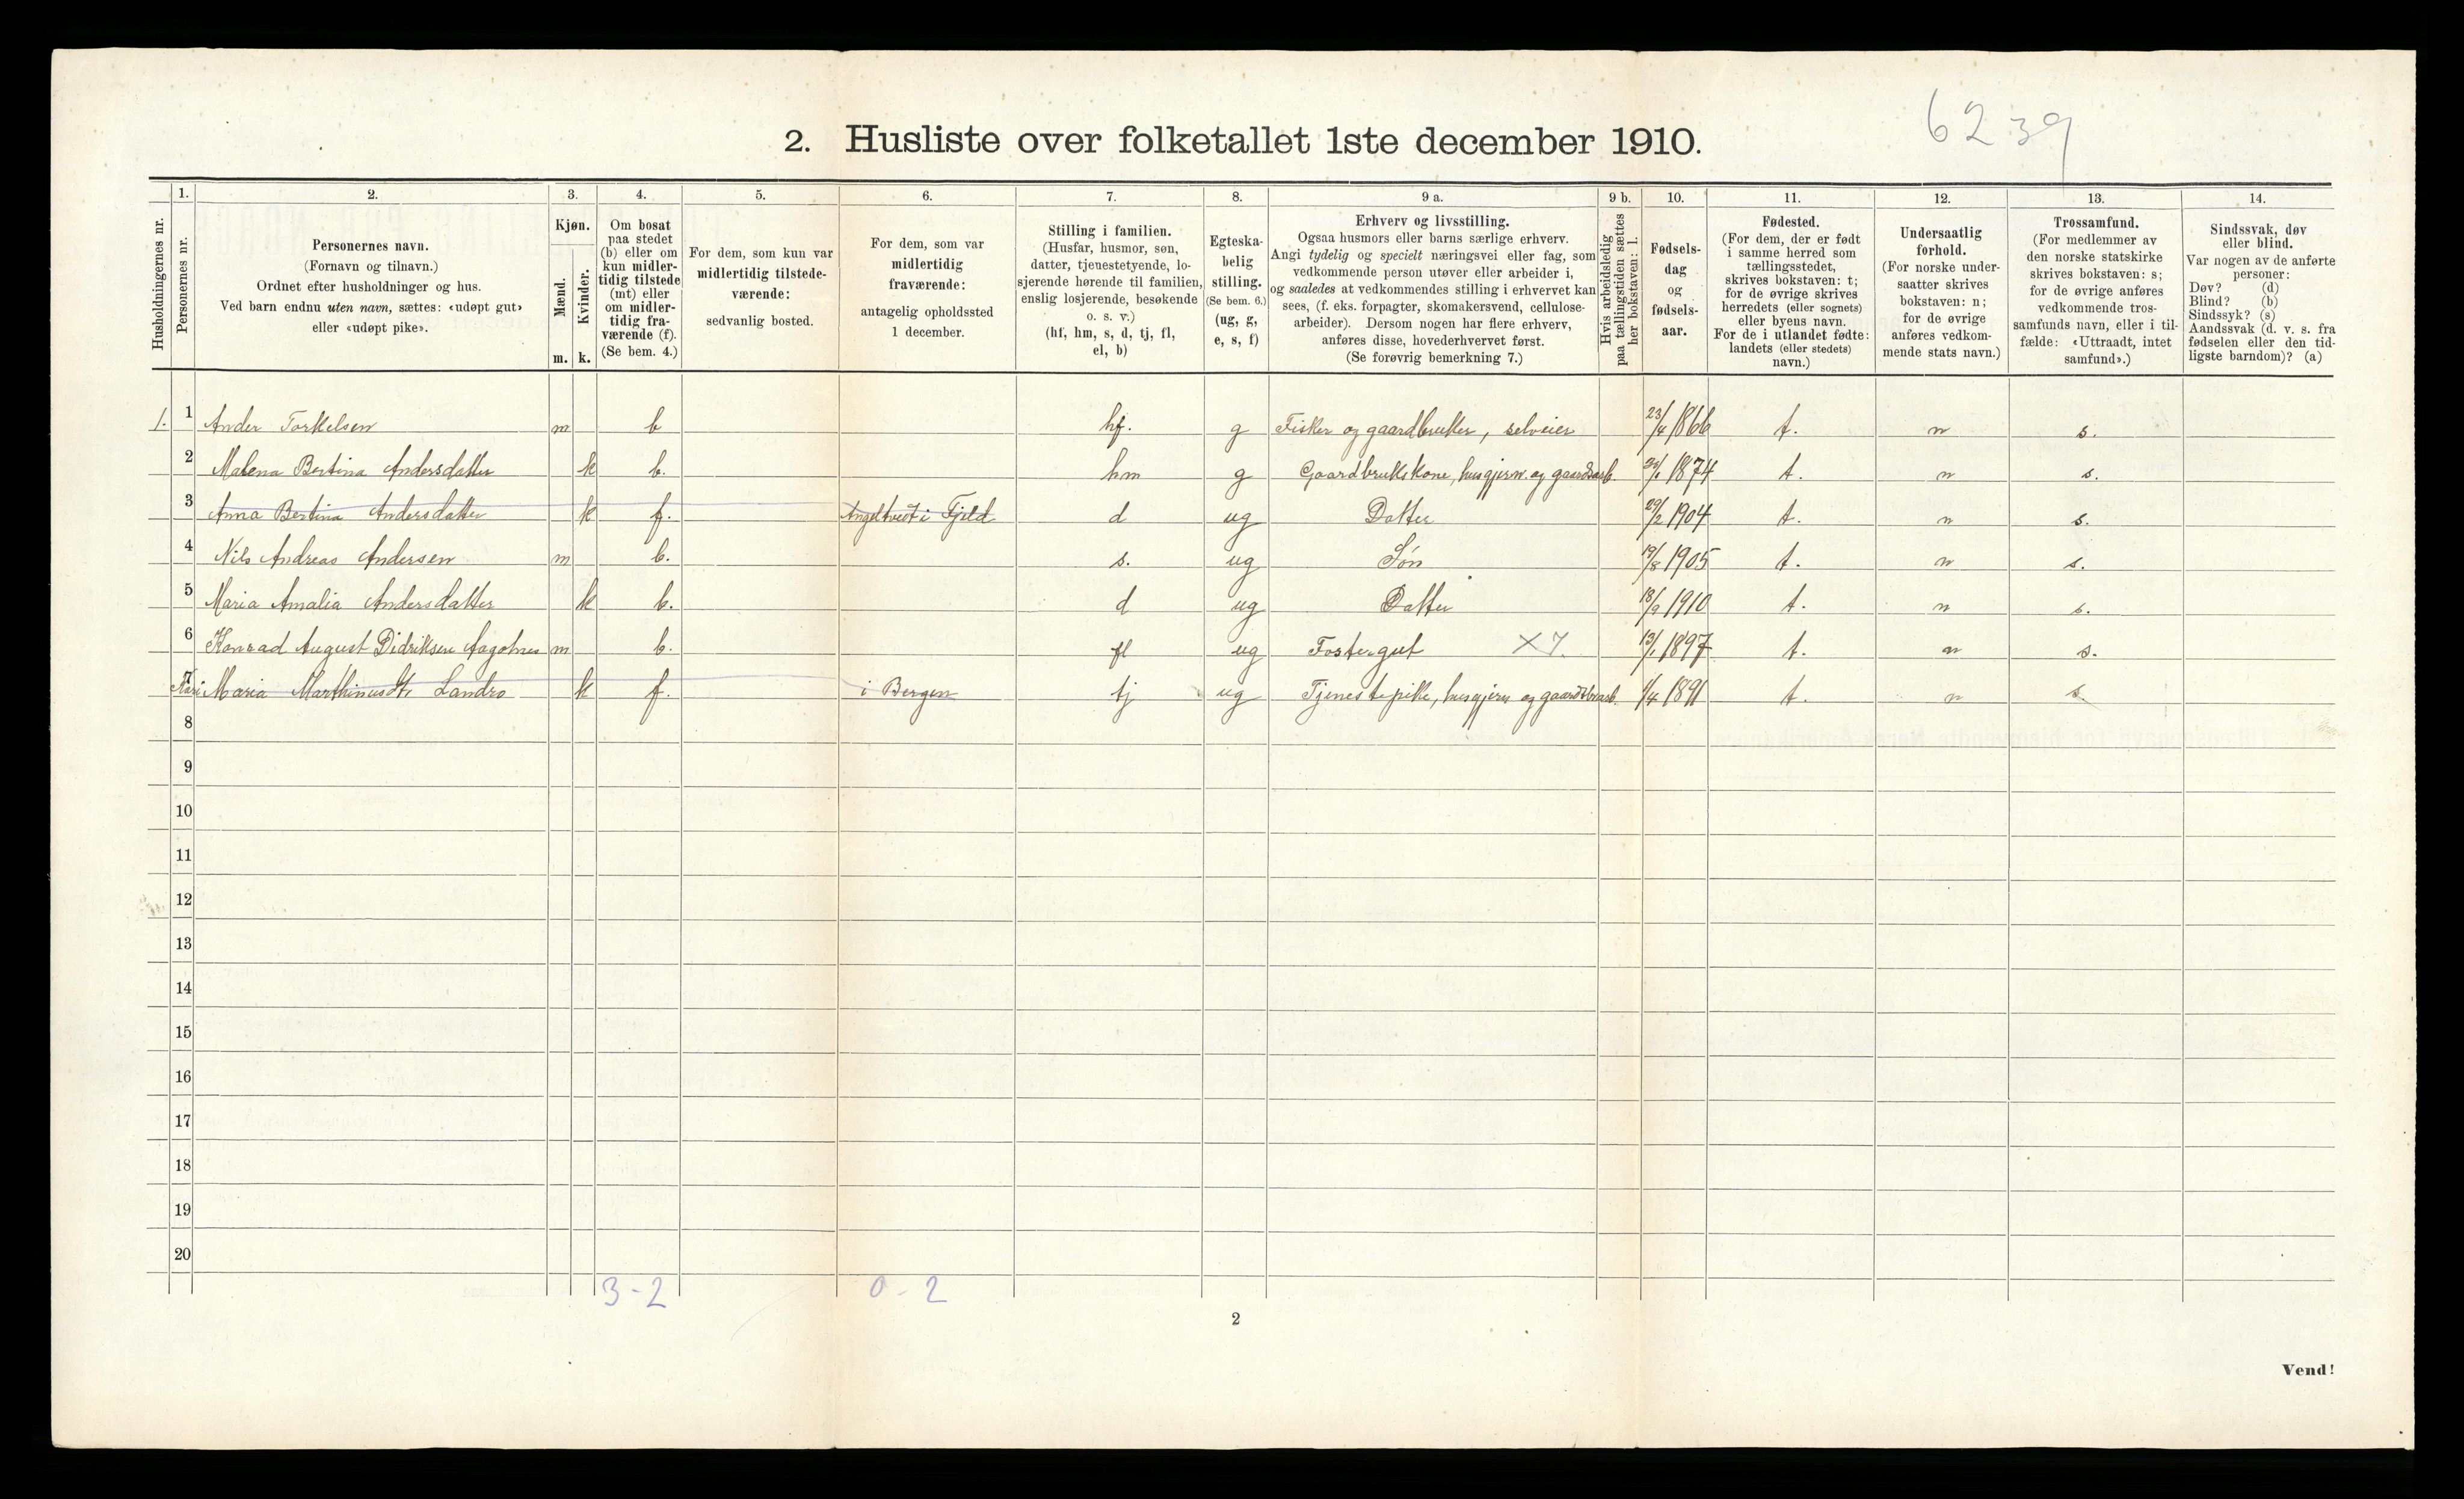 6239
2. Husliste over folketallet 1ste december 1910.
Husholdningernes nr.
1.
Personernes nr.
2.
Personernes navn.
(Fornavn og tilnavn.)
Ordnet efter husholdninger og hus.
Ved barn endnu uten navn, sættes: «udøpt gut»
eller «udøpt pike».
3.
Kjøn.
Mænd.
m.
Kvinder.
k.
4.
Om bosat
paa stedet
(b) eller om
kun midler-
tidig tilstede
(mt) eller
om midler-
tidig fra-
værende (f).
(Se bem. 4.)
5.
For dem, som kun var
midlertidig tilstede-
værende:
sedvanlig bosted.
6.
For dem, som var
midlertidig
fraværende:
antagelig opholdssted
1 december.
7.
Stilling i familien.
(Husfar, husmor, søn,
datter, tjenestetyende, lo-
sjerende hørende til familien,
enslig losjerende, besøkende
o. s. v.)
(hf, hm, s, d, tj, fl,
el, b)
8.
Egteska-
belig
stilling.
(Se bem. 6.)
(ug, g,
e, s, f)
9 a.
Erhverv og livsstilling.
Ogsaa husmors eller barns særlige erhverv.
Angi tydelig og specielt næringsvei eller fag, som
vedkommende person utøver eller arbeider i,
og saaledes at vedkommendes stilling i erhvervet kan
sees, (f. eks. forpagter, skomakersvend, cellulose-
arbeider). Dersom nogen har flere erhverv,
anføres disse, hovederhvervet først.
(Se forøvrig bemerkning 7.)
9 b.
Hvis arbeidsledig
paa tællingstiden sættes
her bokstaven: l.
10.
Fødsels-
dag
og
fødsels-
aar.
11.
Fødested.
(For dem, der er født
i samme herred som
tællingsstedet,
skrives bokstaven: t;
for de øvrige skrives
herredets (eller sognets)
eller byens navn.
For de i utlandet fødte:
landets (eller stedets)
navn.)
12.
Undersaatlig
forhold.
(For norske under-
saatter skrives
bokstaven: n;
for de øvrige
anføres vedkom-
mende stats navn.)
13.
Trossamfund.
(For medlemmer av
den norske statskirke
skrives bokstaven: s;
for de øvrige anføres
vedkommende tros-
samfunds navn, eller i til-
fælde: «Uttraadt, intet
samfund».)
14.
Sindssvak, døv
eller blind.
Var nogen av de anførte
personer:
Døv? (d)
Blind? (b)
Sindssyk? (s)
Aandssvak (d. v. s. fra
fødselen eller den tid-
ligste barndom)? (a)
1. 1 Ander Torkelsen m b hf. g Fisker og gaardbruker, selveier 23/4 1866 t. n s.
2 Malena Bertina Andersdatter k b. hm g Gaardbrukskone, husgjern. og gaardsarb. 1874 t. n s.
3 Anna Bertina Andersdatter k f. Angeltveit i Fjeld d ug Datter 29/2 1904 t. n s.
4 Nils Andreas Andersen m b. s. ug Søn 19/8 1905 t. n s.
5 Maria Amalia Andersdatter k b. d ug Datter 18/9 1910 t. n s.
6 Konrad August Didriksen Aagotnes m b. fl ug Fostergut X7. 13/1 1897 t. n s.
7 Maria Marthinusdtr Landro k f. i Bergen tj ug Tjenestepike, husgjern og gaardsbrarb. 1/4 1891 t. n s
8
9
10
11
12
13
14
15
16
17
18
19
20
3-2 0-2
2
Vend!